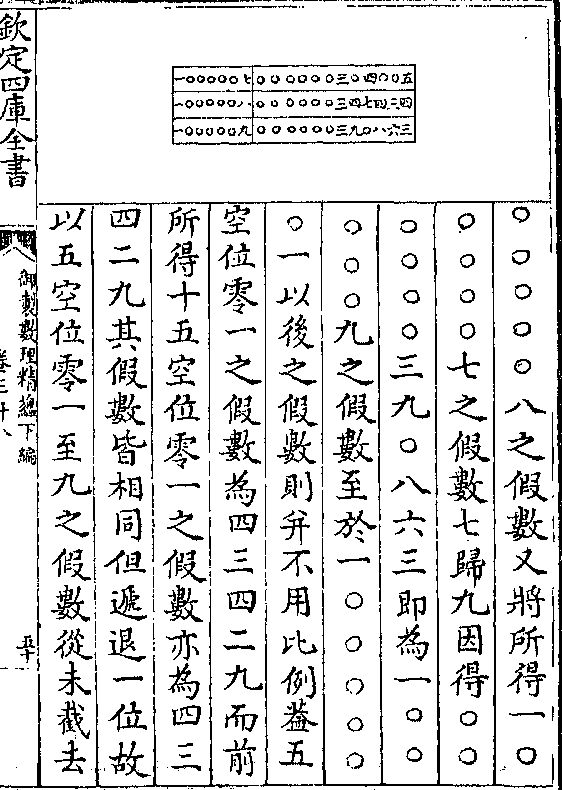 一〇〇〇〇〇七 〇〇〇〇〇〇三〇四〇〇五
一〇〇〇〇〇八 〇〇〇〇〇〇三四七四三四
一〇〇〇〇〇九 〇〇〇〇〇〇三九〇八六三
〇〇〇〇〇八之假數又將所得一〇
〇〇〇〇七之假數七歸九因得〇〇
〇〇〇〇三九〇八六三即為一〇〇
〇〇〇九之假數至於一〇〇〇〇〇
〇一以後之假數則并不用比例葢五
空位零一之假數為四三四二九而前
所得十五空位零一之假數亦為四三
四二九其假數皆相同但遞退一位故
以五空位零一至九之假數從末截去
欽定四庫全書
御製數理精藴下編
卷三十八